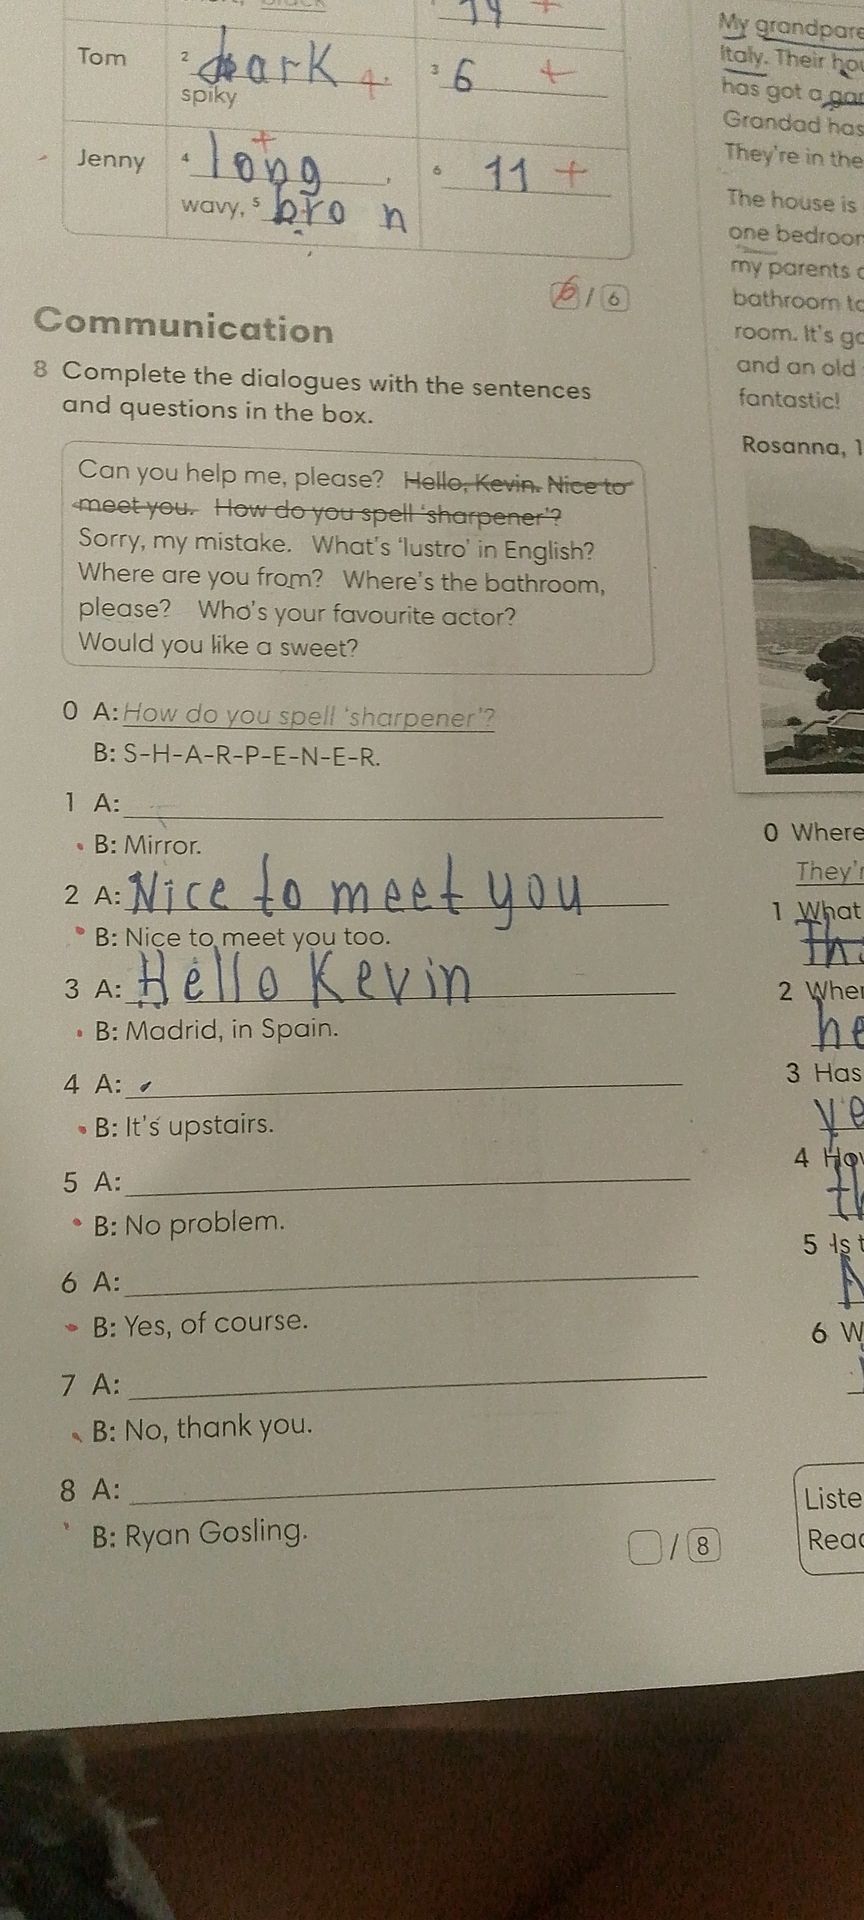 14 +
Tom
2 dark +
3 6 +
spiky
Jenny
4 long + ,
6 11 +
wavy, 5 bro n
6 / 6
Communication
8 Complete the dialogues with the sentences
and questions in the box.
Can you help me, please? Hello, Kevin. Nice to
meet you. How do you spell 'sharpener'?
Sorry, my mistake. What's 'lustro' in English?
Where are you from? Where's the bathroom,
please? Who's your favourite actor?
Would you like a sweet?
0 A: How do you spell 'sharpener'?
B: S-H-A-R-P-E-N-E-R.
1 A:
B: Mirror.
2 A: Nice to meet you
B: Nice to meet you too.
3 A: Hello Kevin
B: Madrid, in Spain.
4 A:
B: It's upstairs.
5 A:
B: No problem.
6 A:
B: Yes, of course.
7 A:
B: No, thank you.
8 A:
B: Ryan Gosling.
/ 8
My
Italy. Their
has got a
Grandad has
They're in the
The house is
one
my parents
bathroom
room. It's
and an old
fantastic!
Rosanna,
0 Where
1 What
2
he
3 Has
4
5 Is
6